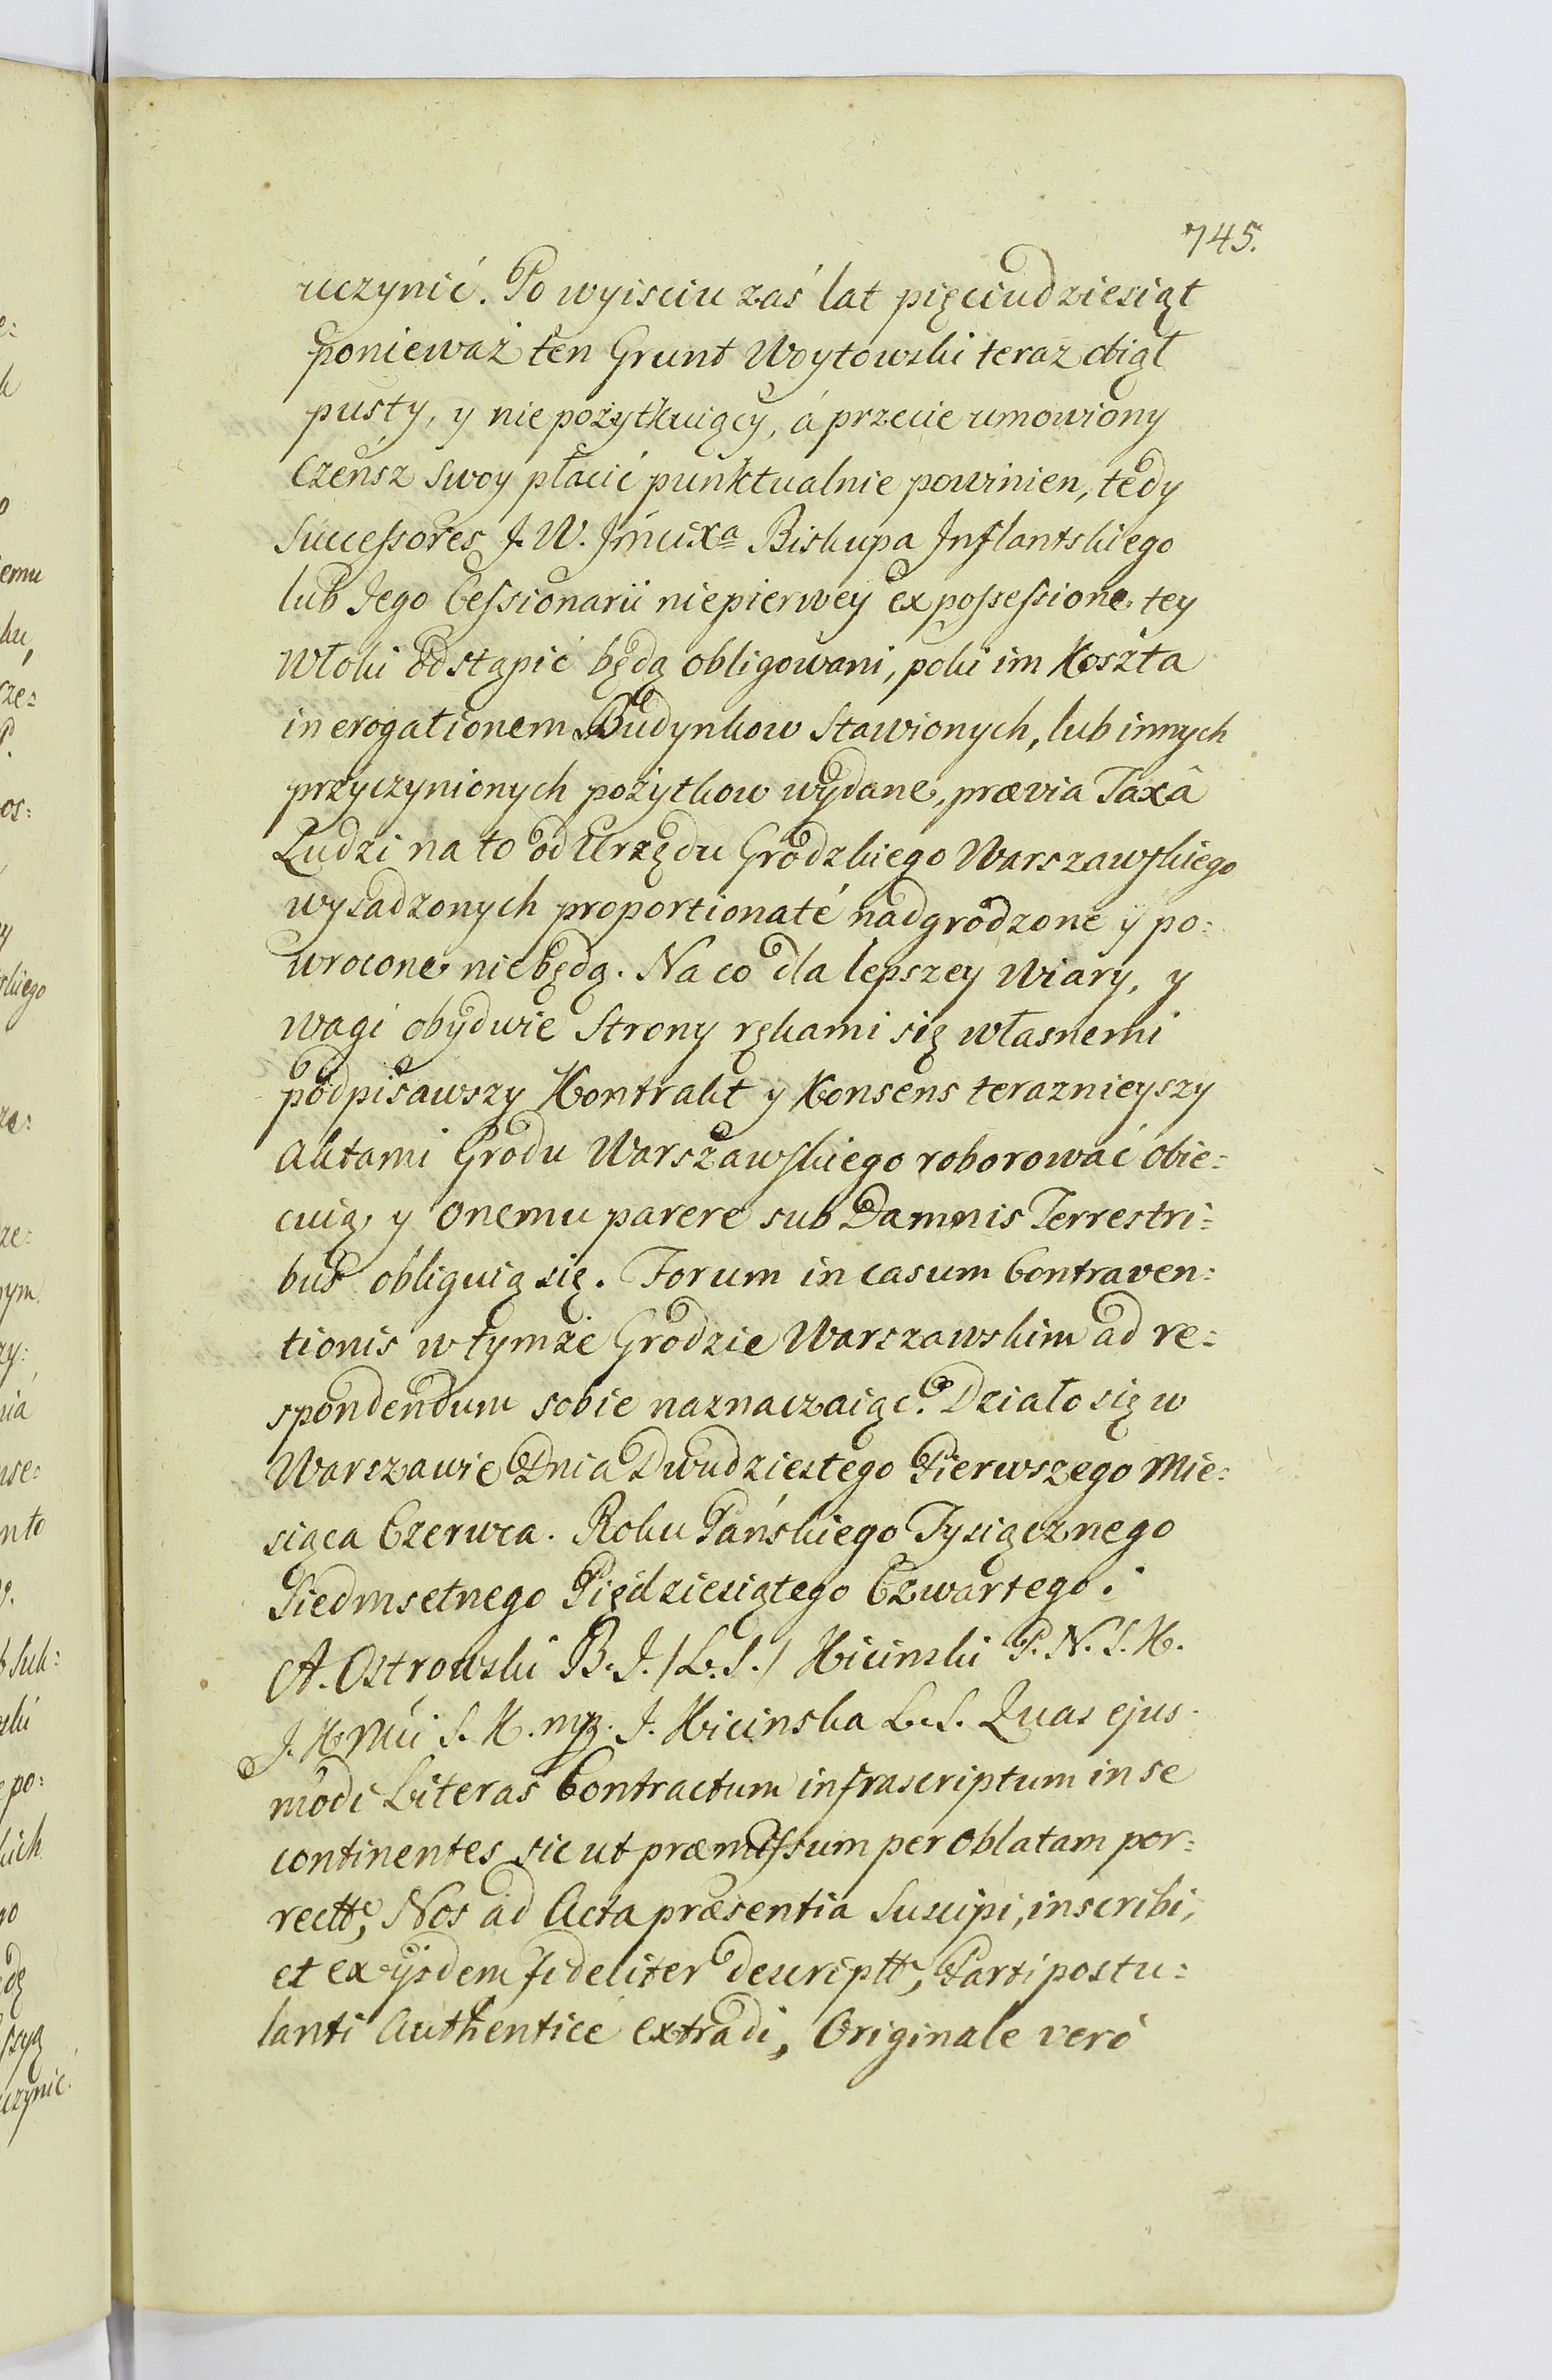 745.
uczynić. Po wyisciu zaś lat pięciudziesiąt
ponieważ ten Grunt Woytowski teraz obiął
pusty, y niepożytkuiący, á przecie umowiony
Czensz swoy płacić punktualnie powinien, tedy
Successores J. W. Jmcixa Biskupa Inflantskiego
lub Jego Cessionarii niepierwey ex possessione tey
Włoki odstąpić będą obligowani, poki im Koszta
in erogationem Budynkow stawionych, lub innych
przyczynionych pożytkow wydane, prævia Taxâ
Ludzi na to od Urzędu Grodzkiego Warszawskiego
wysadzonych proportionaté nadgrodzone ÿ po:
wrocone niebędą. Na co dla lepszey wiary, y
wagi obydwie strony rękami się własnemi
podpisawszy Kontrakt y Konsens teraznieyszy
Aktami Grodu Warszawskiego roborować obie:
cuią, y onemu parere sub Damnis Terrestri:
bus obliguią się. Forum in casum Contraven:
tionis w tymże Grodzie Warszawskim ad re:
spondendum sobie naznaczaiąc. Działo się w
Warszawie Dnia Dwudziestego Pierwszego Mie:
siąca Czerwca. Roku Pańskiego Tysiącznego
Siedmsetnego Piędziesiątego Czwartego.
A. Ostrowski B. J. /L. S./ Kicinski P. N. S. K.
J. K. Mci S. K. mp. J. Kicinska L. S. Quas ejus
modi Literas Contractum infrascriptum in se
continentes sicut præmissum per oblatam por:
rectte, Nos ad Acta præsentia suscipi, inscribi,
et ex ijsdem fideliter descriptt, Parti postu:
lanti Authenticé extradi, Originale veró